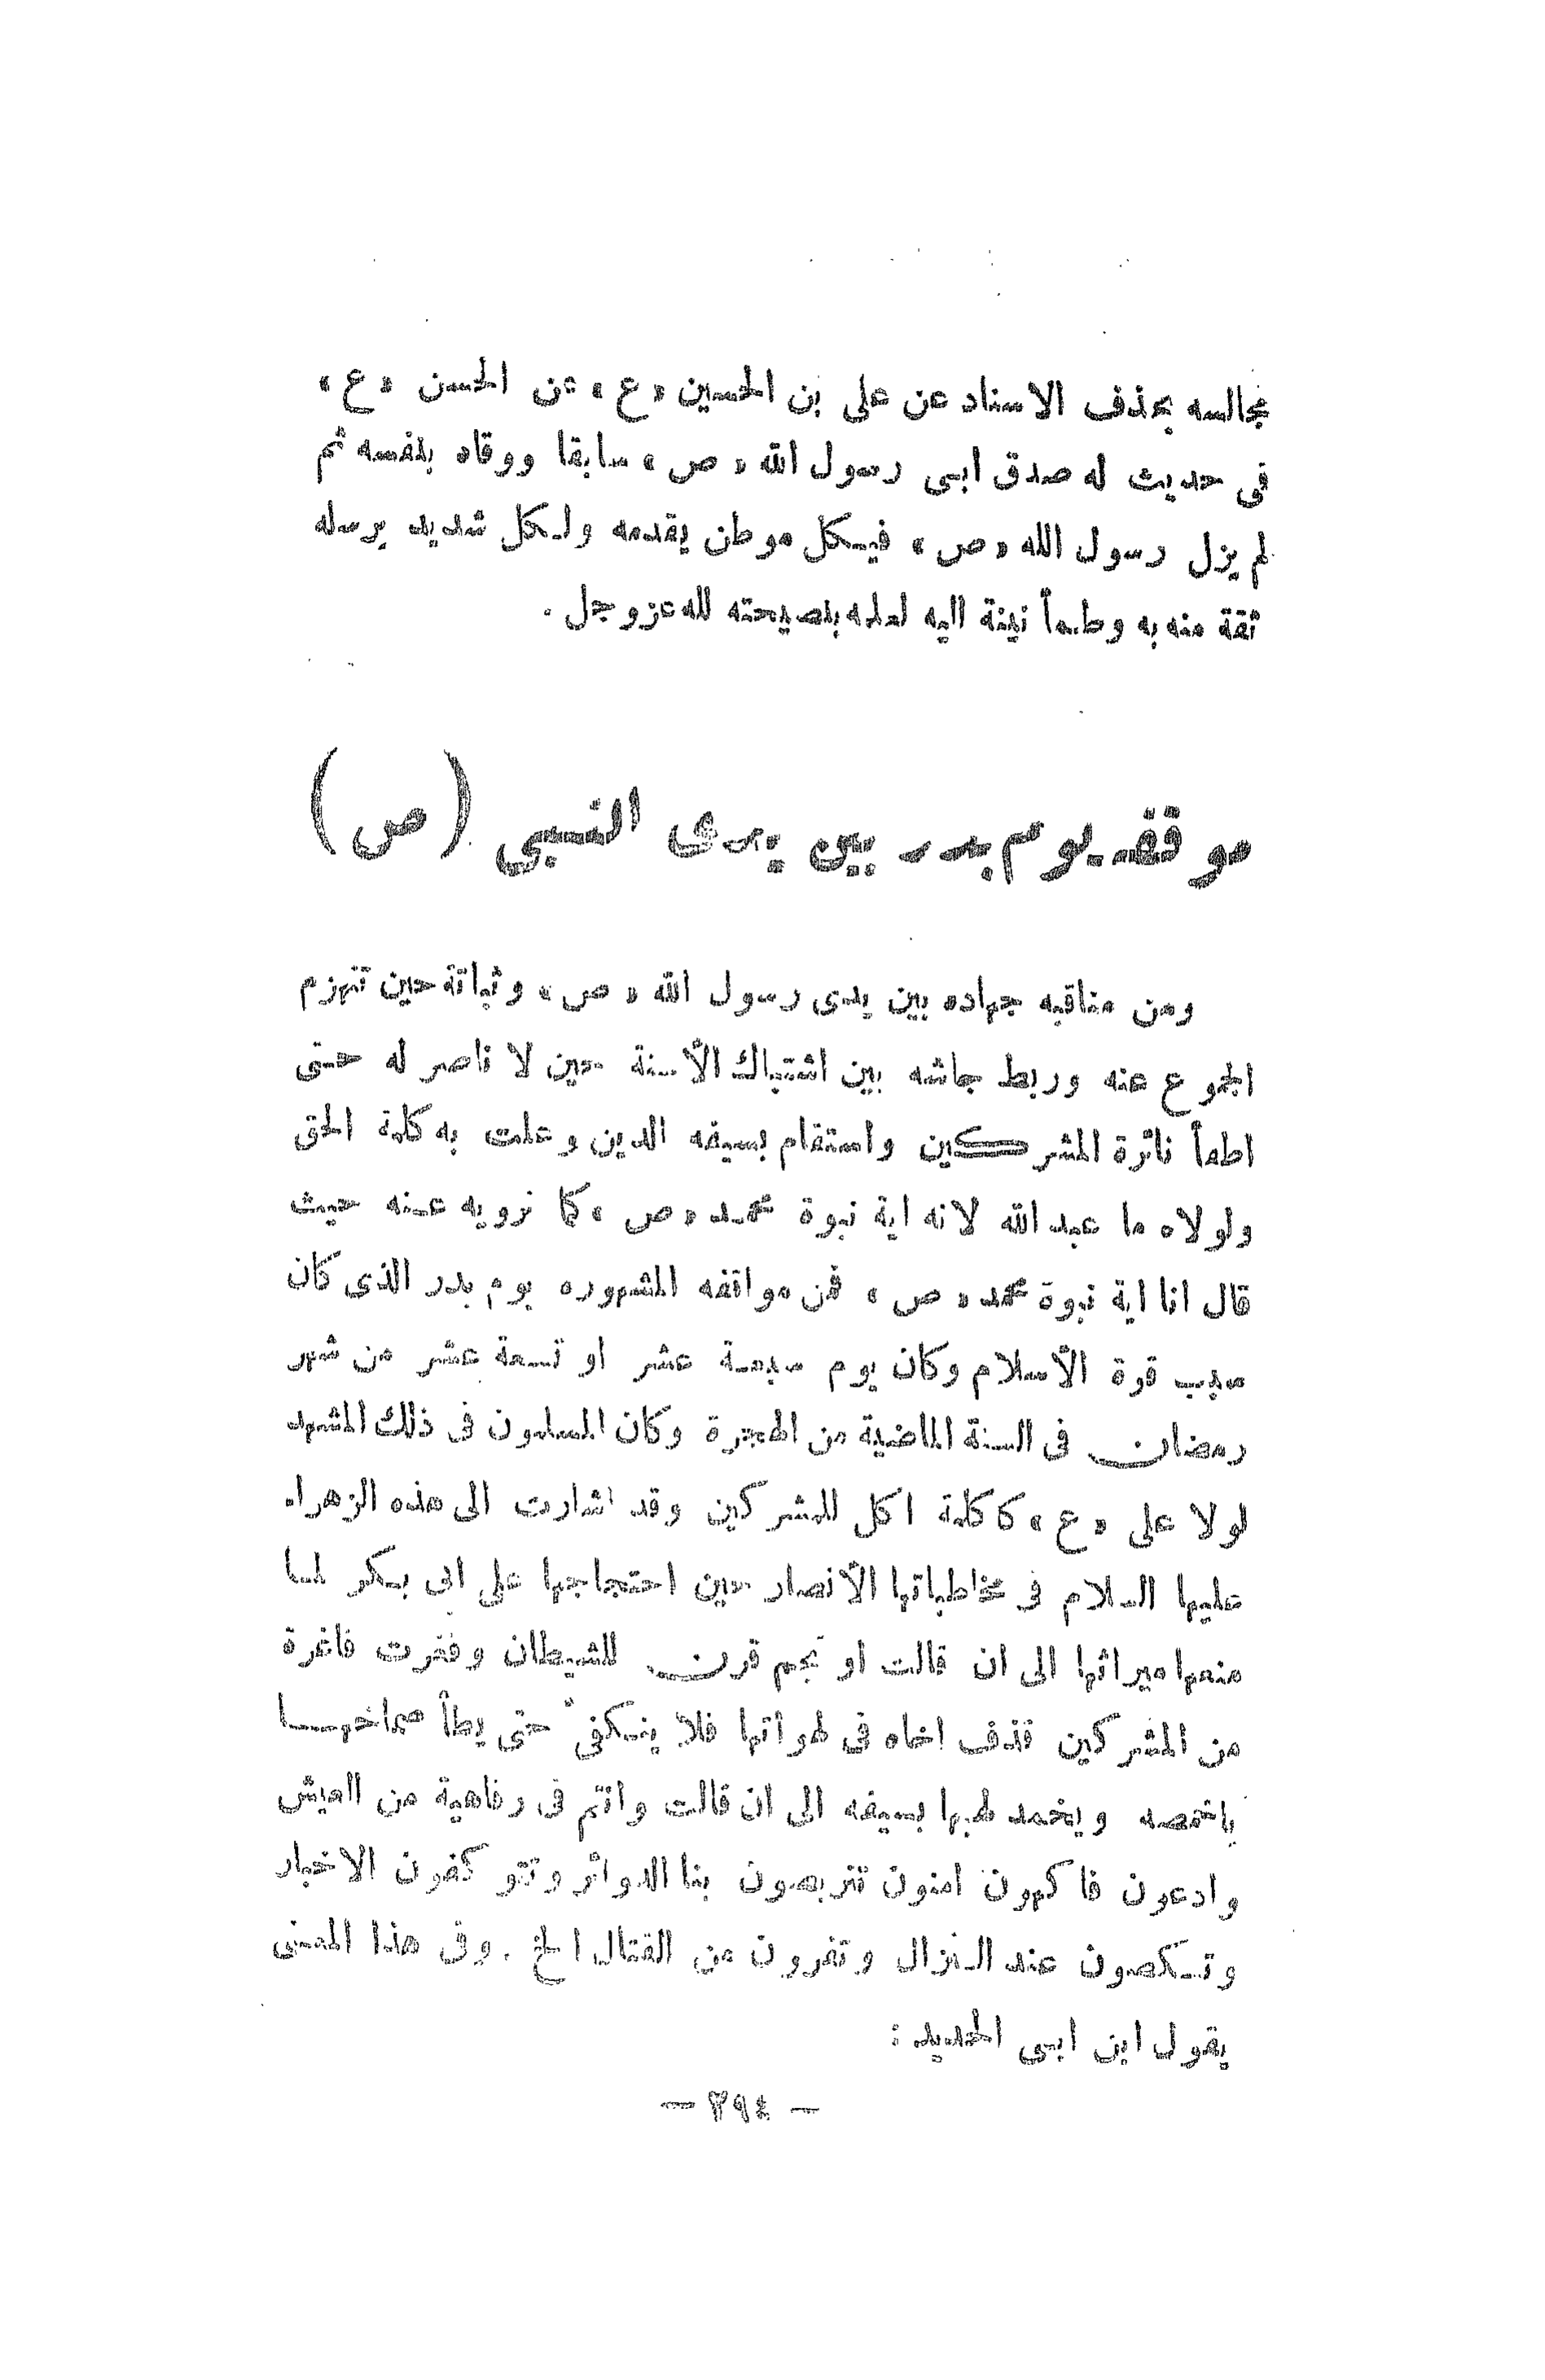 مجالسه بحذف الاسناد عن على بن الحسين «ع» عن الحسن «ع»
فى حديث له صدق ابى رسول الله «ص» سابقا ووقاه بنفسه ثم
لم يزل رسول الله «ص» فيكل موطن يقدمه ولكل شديد يرسله
ثقة منه به وطمأ نينة اليه لعلمه بنصيحته لله عزوجل .
موقفه يوم بدر بين يدى النبى (ص)
ومن مناقبه جهاده بين يدى رسول الله «ص» وثباتة حين تنهزم
الجموع عنه وربط جاشه بين اشتباك الأسنة حين لا ناصر له حتى
اطمأ نائرة المشركين واستقام بسيفه الدين وعلت به كلمة الحق
ولولاه ما عبد الله لانه اية نبوة محمد «ص» كما نرويه عنه حيث
قال انا اية نبوة محمد «ص» فمن مواقفه المشهوره يوم بدر الذى كان
سبب قوة الأسلام وكان يوم سبعة عشر او تسعة عشر من شهر
رمضان فى السنة الماضية من الهجرة وكان المسلمون فى ذلك المشهد
لولا على «ع» كاكلة اكل للمشركين وقد اشارت الى هذه الزهراء
عليها السلام فى مخاطباتها الأنصار حين احتجاجها على ابى بكر لما
منعها ميراثها الى ان قالت او نجم قرن للشيطان وفغرت فاغرة
من المشركين قذف اخاه فى لهوأتها فلا ينكفىْ حتى يطأ صماخها
باخمصه ويخمد لهبها بسيفه الى ان قالت وانتم فى رفاهية من العيش
وادعون فاكهون امنون تتربصون بنا الدوائر وتتوكفون الاخبار
وتنكصون عند النزال وتفرون من القتال الخ . وفى هذا المعنى
يقول ابن ابى الحديد :
— ٢٩٤ —